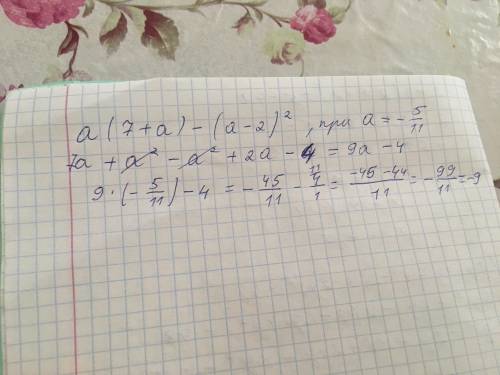 a(7+a)-(a-2)², при a=-5/11
7a+a²-a²+2a-4=9a-4
9·(-5/11)-4=-45/11-4/1=(-45-44)/11=-99/11=-9